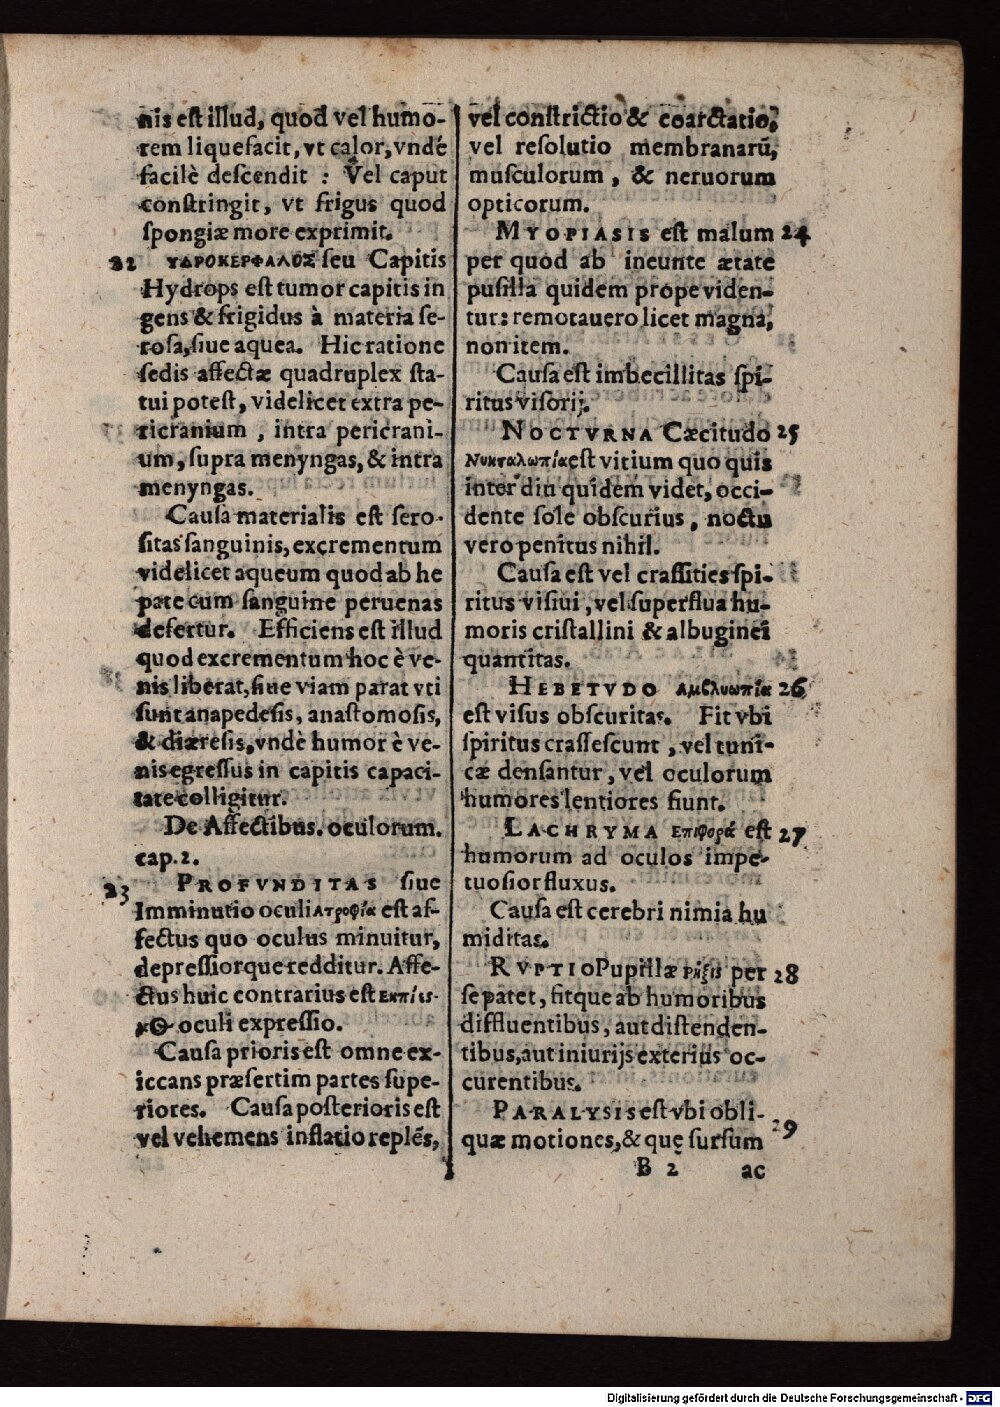 nis est illud, quod vel humo-
rem liquefacit, vt calor, vndé
facilè descendit : Vel caput
constringit, vt frigus quod
spongiæ more exprimit.
22 ΥΔΡΟΚΕΡΦΑΛΟΣ seu Capitis
Hydrops est tumor capitis in
gens & frigidus à materia se-
rosa, siue aquea. Hic ratione
sedis affectæ quadruplex sta-
tui potest, videlicet extra pe-
ricranium, intra pericrani-
um, supra menyngas, & intra
menyngas.
Causa materialis est sero-
sitas sanguinis, excrementum
videlicet aqueum quod ab he
pate cum sanguine peruenas
defertur. Efficiens est illud
quod excrementum hoc è ve-
nis liberat, siue viam parat vti
sunt anapedesis, anastomosis,
& diæresis, vndè humor è ve-
nis egressus in capitis capaci-
tate colligitur.
De Affectibus. oculorum.
cap. 2.
23 PROFVNDITAS siue
Imminutio oculi Ατροφία est af-
fectus quo oculus minuitur,
depressiorque redditur. Affe-
ctus huic contrarius est Εκπίεσ-
μΟς oculi expressio.
Causa prioris est omne ex-
iccans præsertim partes supe-
riores. Causa posterioris est
vel vehemens inflatio replēs,
vel constrictio & coarctatio,
vel resolutio membranarū,
musculorum, & neruorum
opticorum.
MYOPIASIS est malum 24
per quod ab ineunte ætate
pusilla quidem prope viden-
tur: remota uero licet magna,
non item.
Causa est imbecillitas spi-
ritus visorij.
NOCTVRNA Cæcitudo 25
Νυκταλωπία est vitium quo quis
inter diu quidem videt, occi-
dente sole obscurius, noctu
vero penitus nihil.
Causa est vel crassities spi-
ritus visiui, vel superflua hu-
moris cristallini & albuginei
quantitas.
HEBETVDO Αμβλυωπία 26
est visus obscuritas. Fit vbi
spiritus crassescunt, vel tuni-
cæ densantur, vel oculorum
humores lentiores fiunt.
LACHRYMA Επιφορά est 27
humorum ad oculos impe-
tuosior fluxus.
Causa est cerebri nimia hu
miditas.
RVPTIO Pupillæ Ρῆξις per 28
se patet, fitque ab humoribus
diffluentibus, aut distenden-
tibus, aut iniurijs exterius oc-
curentibus.
PARALYSIS est vbi obli- 29
quæ motiones, & quę sursum
B 2 ac
Digitalisierung gefördert durch die Deutsche Forschungsgemeinschaft - DFG